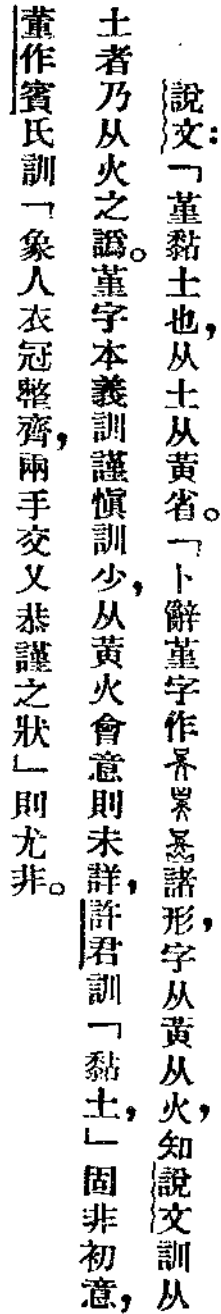 說文：「堇黏土也，从土从黃省。「卜辭堇字作諸形，字从黃从火，知說文訓从
土者乃从火之譌。堇字本義訓謹慎訓少，从黃火會意則未詳，許君訓「黏土，」固非初意，
董作賓氏訓「象人衣冠整齊，兩手交叉恭謹之狀」則尤非。